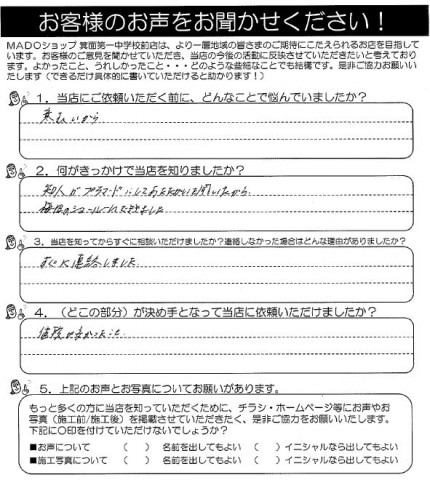 お客様のお声をお聞かせください！
MADOショップ 箕面第一中学校前店は、より一層地域の皆さまのご期待にこたえられるお店を目指して
います。お客様のご意見を聞かせていただき、当店の今後の活動に反映させていただきたいと考えており
ます。よかったこと、うれしかったこと・・・どのような些細なことでも結構です。是非ご協力お願いい
たします（できるだけ具体的に書いていただけると助かります！）
1．当店にご依頼いただく前に、どんなことで悩んでいましたか？
寒いから
2．何がきっかけで当店を知りましたか？
知人がプラマードにしてあたたかいと聞いたから
3．当店を知ってからすぐに相談いただけましたか？連絡しなかった場合はどんな理由がありましたか？
すぐに連絡しました
4．（どこの部分）が決め手となって当店に依頼いただけましたか？
価格が安かったこと
5．上記のお声とお写真についてお願いがあります。
もっと多くの方に当店を知っていただくために、チラシ・ホームページ等にお声やお
写真（施工前/施工後）を掲載させていただきたく、是非ご協力をお願いいたします。
下記に〇印を付けていただけないでしょうか？
■お声について （ ） 名前を出してもよい （ ）イニシャルなら出してもよい
■施工写真について （ ） 名前を出してもよい （ ）イニシャルなら出してもよい